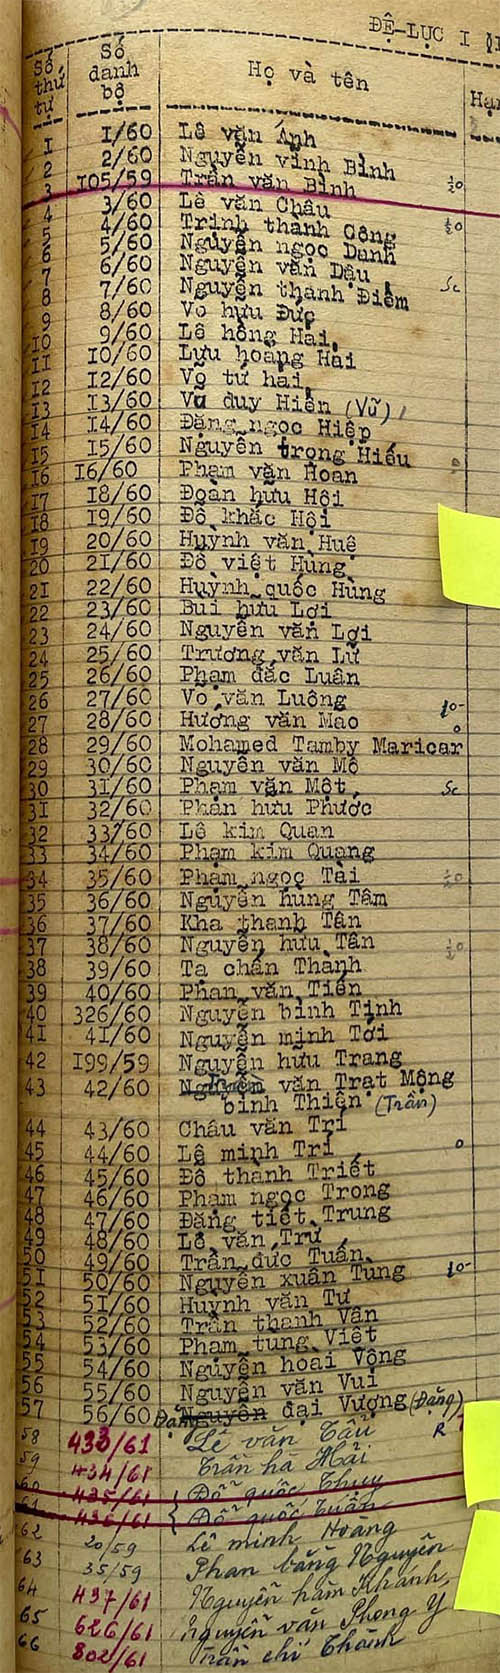 ĐỆ-LỤC I
Số thứ tự Số danh bộ Họ và tên Hạn
1 1/60 Lê văn Ánh
2 2/60 Nguyễn vĩnh Bình
3 105/59 Trần văn Bình 10
4 3/60 Lê văn Châu
5 4/60 Trịnh thành Công 10
6 5/60 Nguyễn ngọc Danh
7 6/60 Nguyễn văn Dậu Sc
8 7/60 Nguyễn thành Điểm
9 8/60 Võ hữu Đức
10 9/60 Lê hồng Hải
11 10/60 Lưu hoàng Hải
12 12/60 Võ tứ hải
13 13/60 Vũ duy Hiền (Vũ)
14 14/60 Đặng ngọc Hiệp
15 15/60 Nguyễn trọng Hiếu
16 16/60 Phạm văn Hoan
17 18/60 Đoàn hữu Hội
18 19/60 Đỗ khắc Hội
19 20/60 Huỳnh văn Huệ
20 21/60 Đỗ việt Hùng
21 22/60 Huỳnh quốc Hùng
22 23/60 Bùi hữu Lợi
23 24/60 Nguyễn văn Lợi
24 25/60 Trương văn Lữ
25 26/60 Phạm đắc Luân
26 27/60 Võ văn Luông 10-
27 28/60 Hướng văn Mao o
28 29/60 Mohamed Tamby Maricar
29 30/60 Nguyễn văn Mô
30 31/60 Phạm văn Một Sc
31 32/60 Phan hữu Phước
32 33/60 Lê kim Quan
33 34/60 Phạm kim Quang
34 35/60 Phạm ngọc Tài 10
35 36/60 Nguyễn hùng Tâm
36 37/60 Kha thanh Tân
37 38/60 Nguyễn hữu Tân 10
38 39/60 Tạ chấn Thành
39 40/60 Phan văn Tiến
40 326/60 Nguyễn bỉnh Tịnh
41 41/60 Nguyễn minh Tới
42 199/59 Nguyễn hữu Trang
43 42/60 Nguyễn văn Trạt Mộng
bình Thiện (Trần)
44 43/60 Châu văn Trí
45 44/60 Lê minh Trí o
46 45/60 Đỗ thành Triết
47 46/60 Phạm ngọc Trong
48 47/60 Đặng tiết Trung
49 48/60 Lê văn Trứ
50 49/60 Trần đức Tuấn
51 50/60 Nguyễn xuân Tùng 10-
52 51/60 Huỳnh văn Tư
53 52/60 Trần thanh Vân
54 53/60 Phạm tùng Việt
55 54/60 Nguyễn hoài Vọng
56 55/60 Nguyễn văn Vui
57 56/60 Đặng Nguyễn đại Vượng (Đặng)
58 433/61 Lê văn Tẩu R
59 434/61 Trần hà Hải
60 435/61 Đỗ quốc Thụy
61 436/61 Đỗ quốc Tuấn
62 20/59 Lê minh Hoàng
63 35/59 Phan bằng Nguyên
64 437/61 Nguyễn hàm Khánh
65 626/61 Nguyễn văn Phong Y
66 802/61 Trần chí Thành